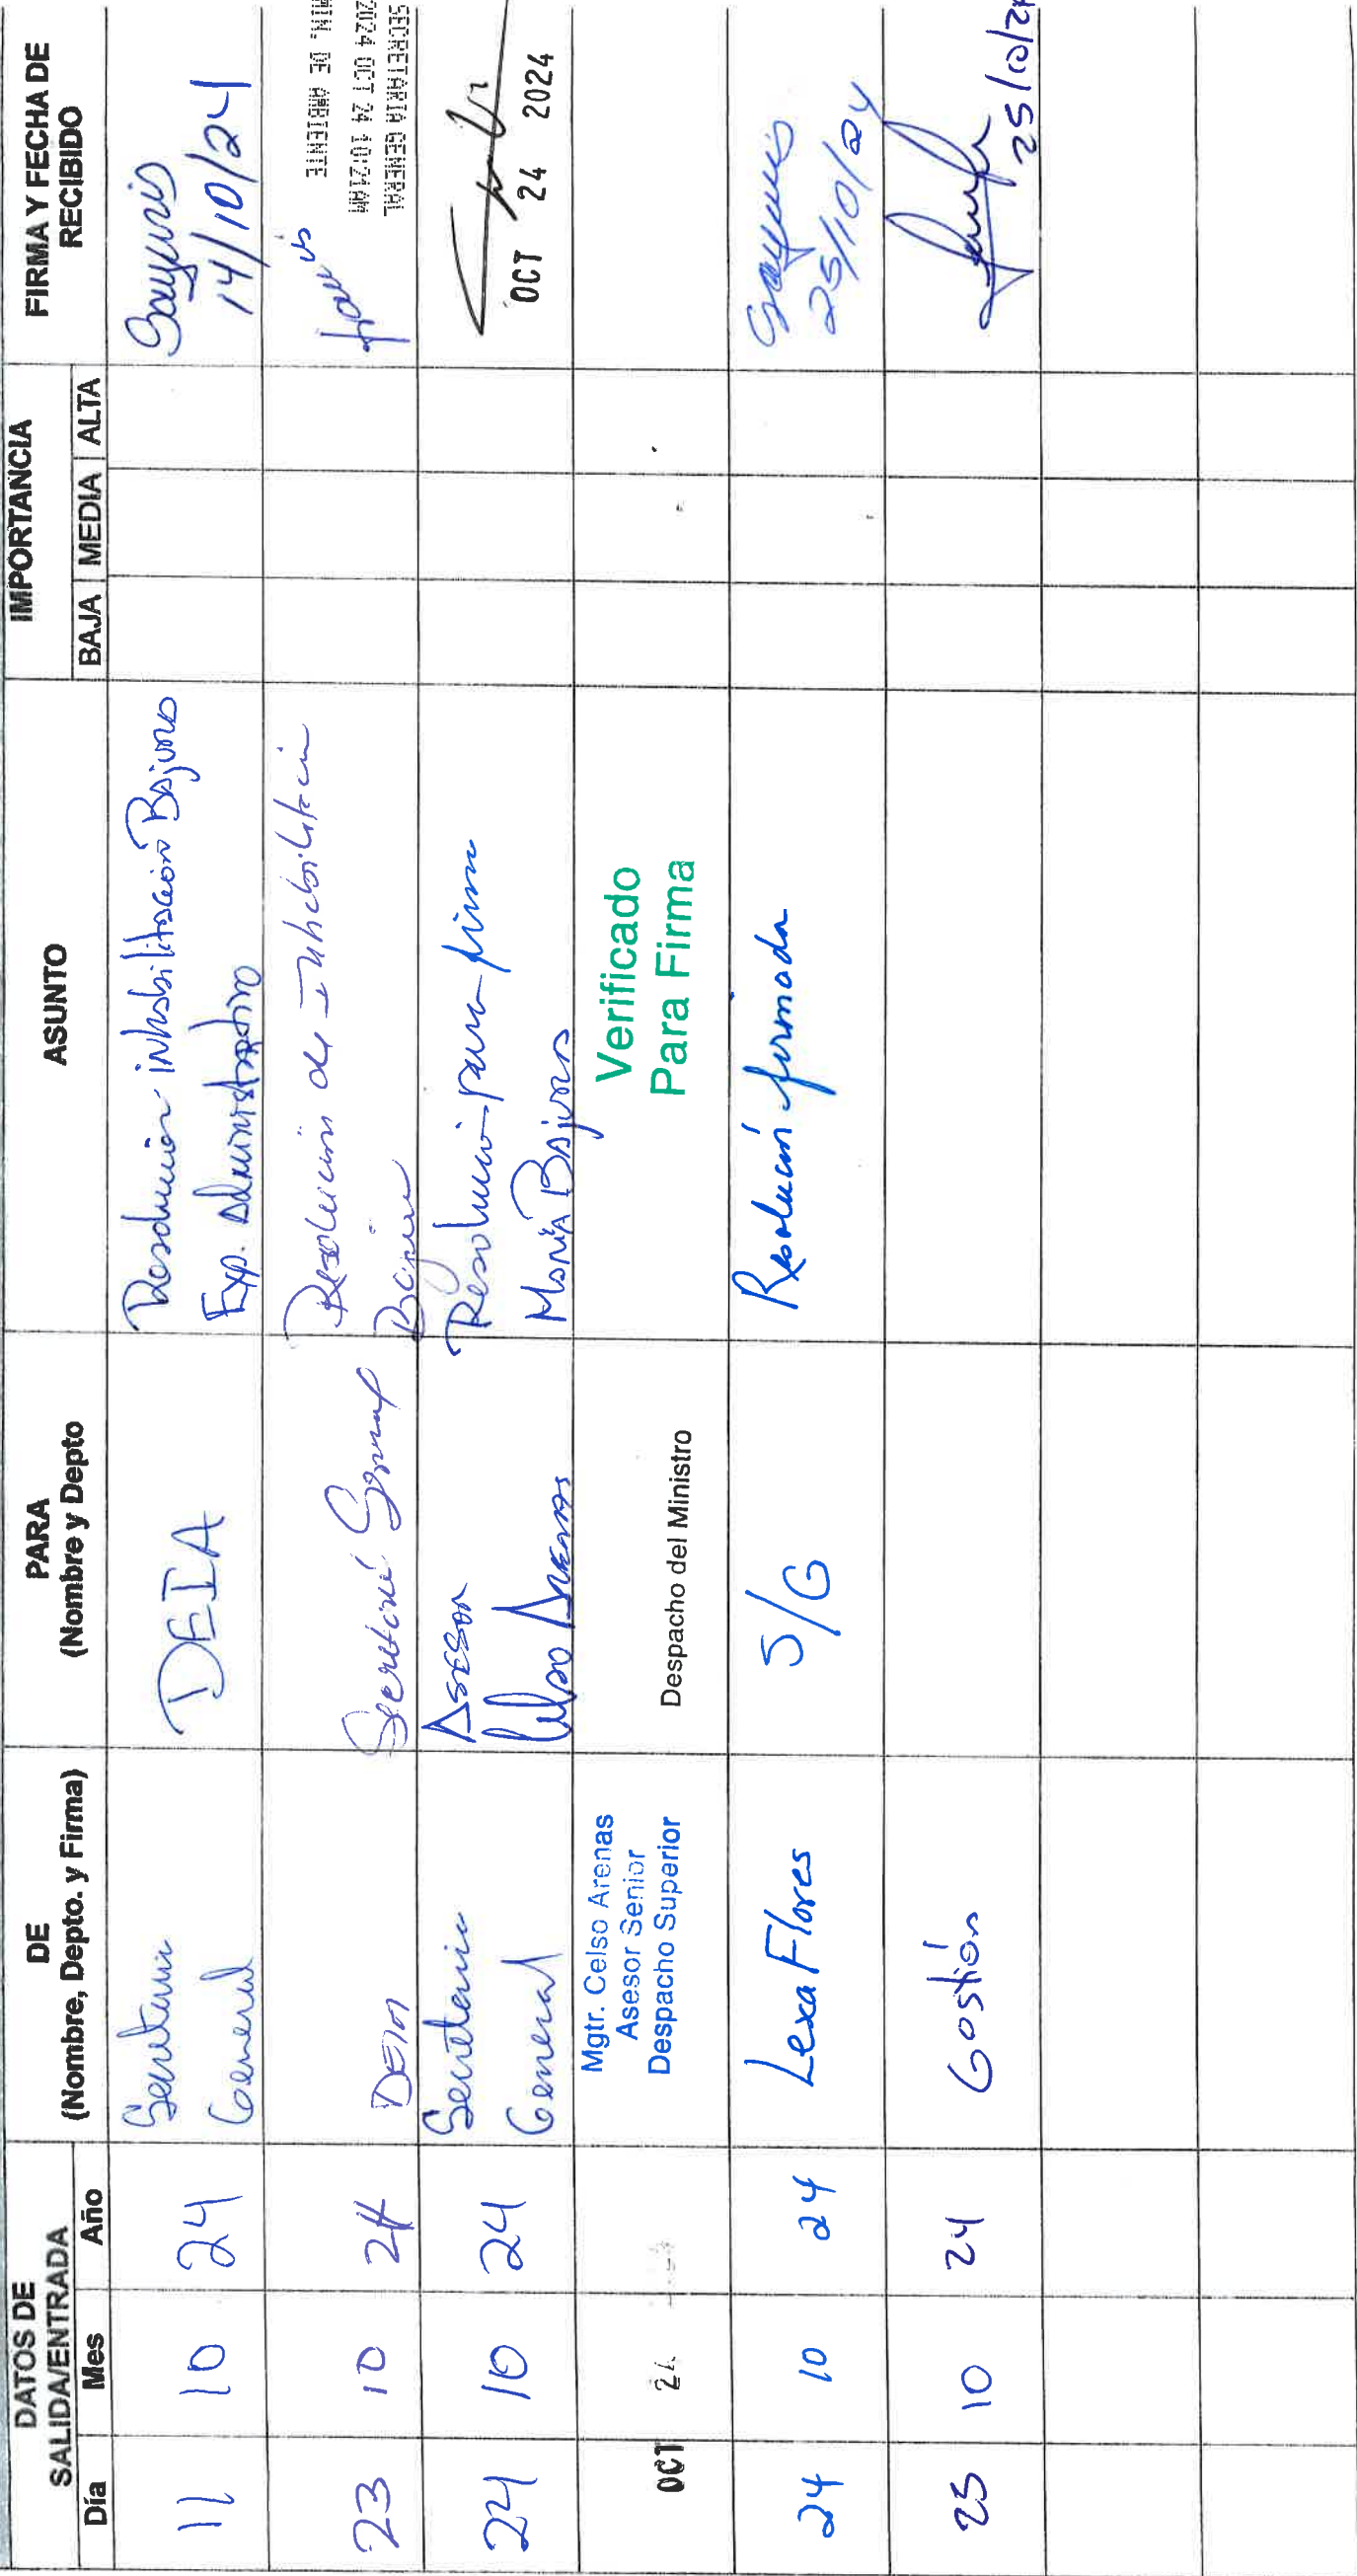 DATOS DE
SALIDA/ENTRADA
Día Mes Año
DE
(Nombre, Depto. y Firma)
PARA
(Nombre y Depto
ASUNTO
IMPORTANCIA
BAJA MEDIA ALTA
FIRMA Y FECHA DE
RECIBIDO
11 10 24
Secretaria
General
DEIA
Resolución inhabilitación Bajura
Exp. Administrativo
14/10/24
23 10 24
DEIA
Secretaria General
Resolución de Inhabilitación
SECRETARIA GENERAL
2024 OCT 24 10:21AM
MIN. DE AMBIENTE
24 10 24
Secretaria
General
Asesor
Celso Arenas
Resolución para firma
María Bajura
OCT 24 2024
OCT 24
Mgtr. Celso Arenas
Asesor Senior
Despacho Superior
Despacho del Ministro
Verificado
Para Firma
24 10 24
Lexa Flores
S/G
Resolución firmada
25/10/24
25 10 24
Gostión
25/10/24